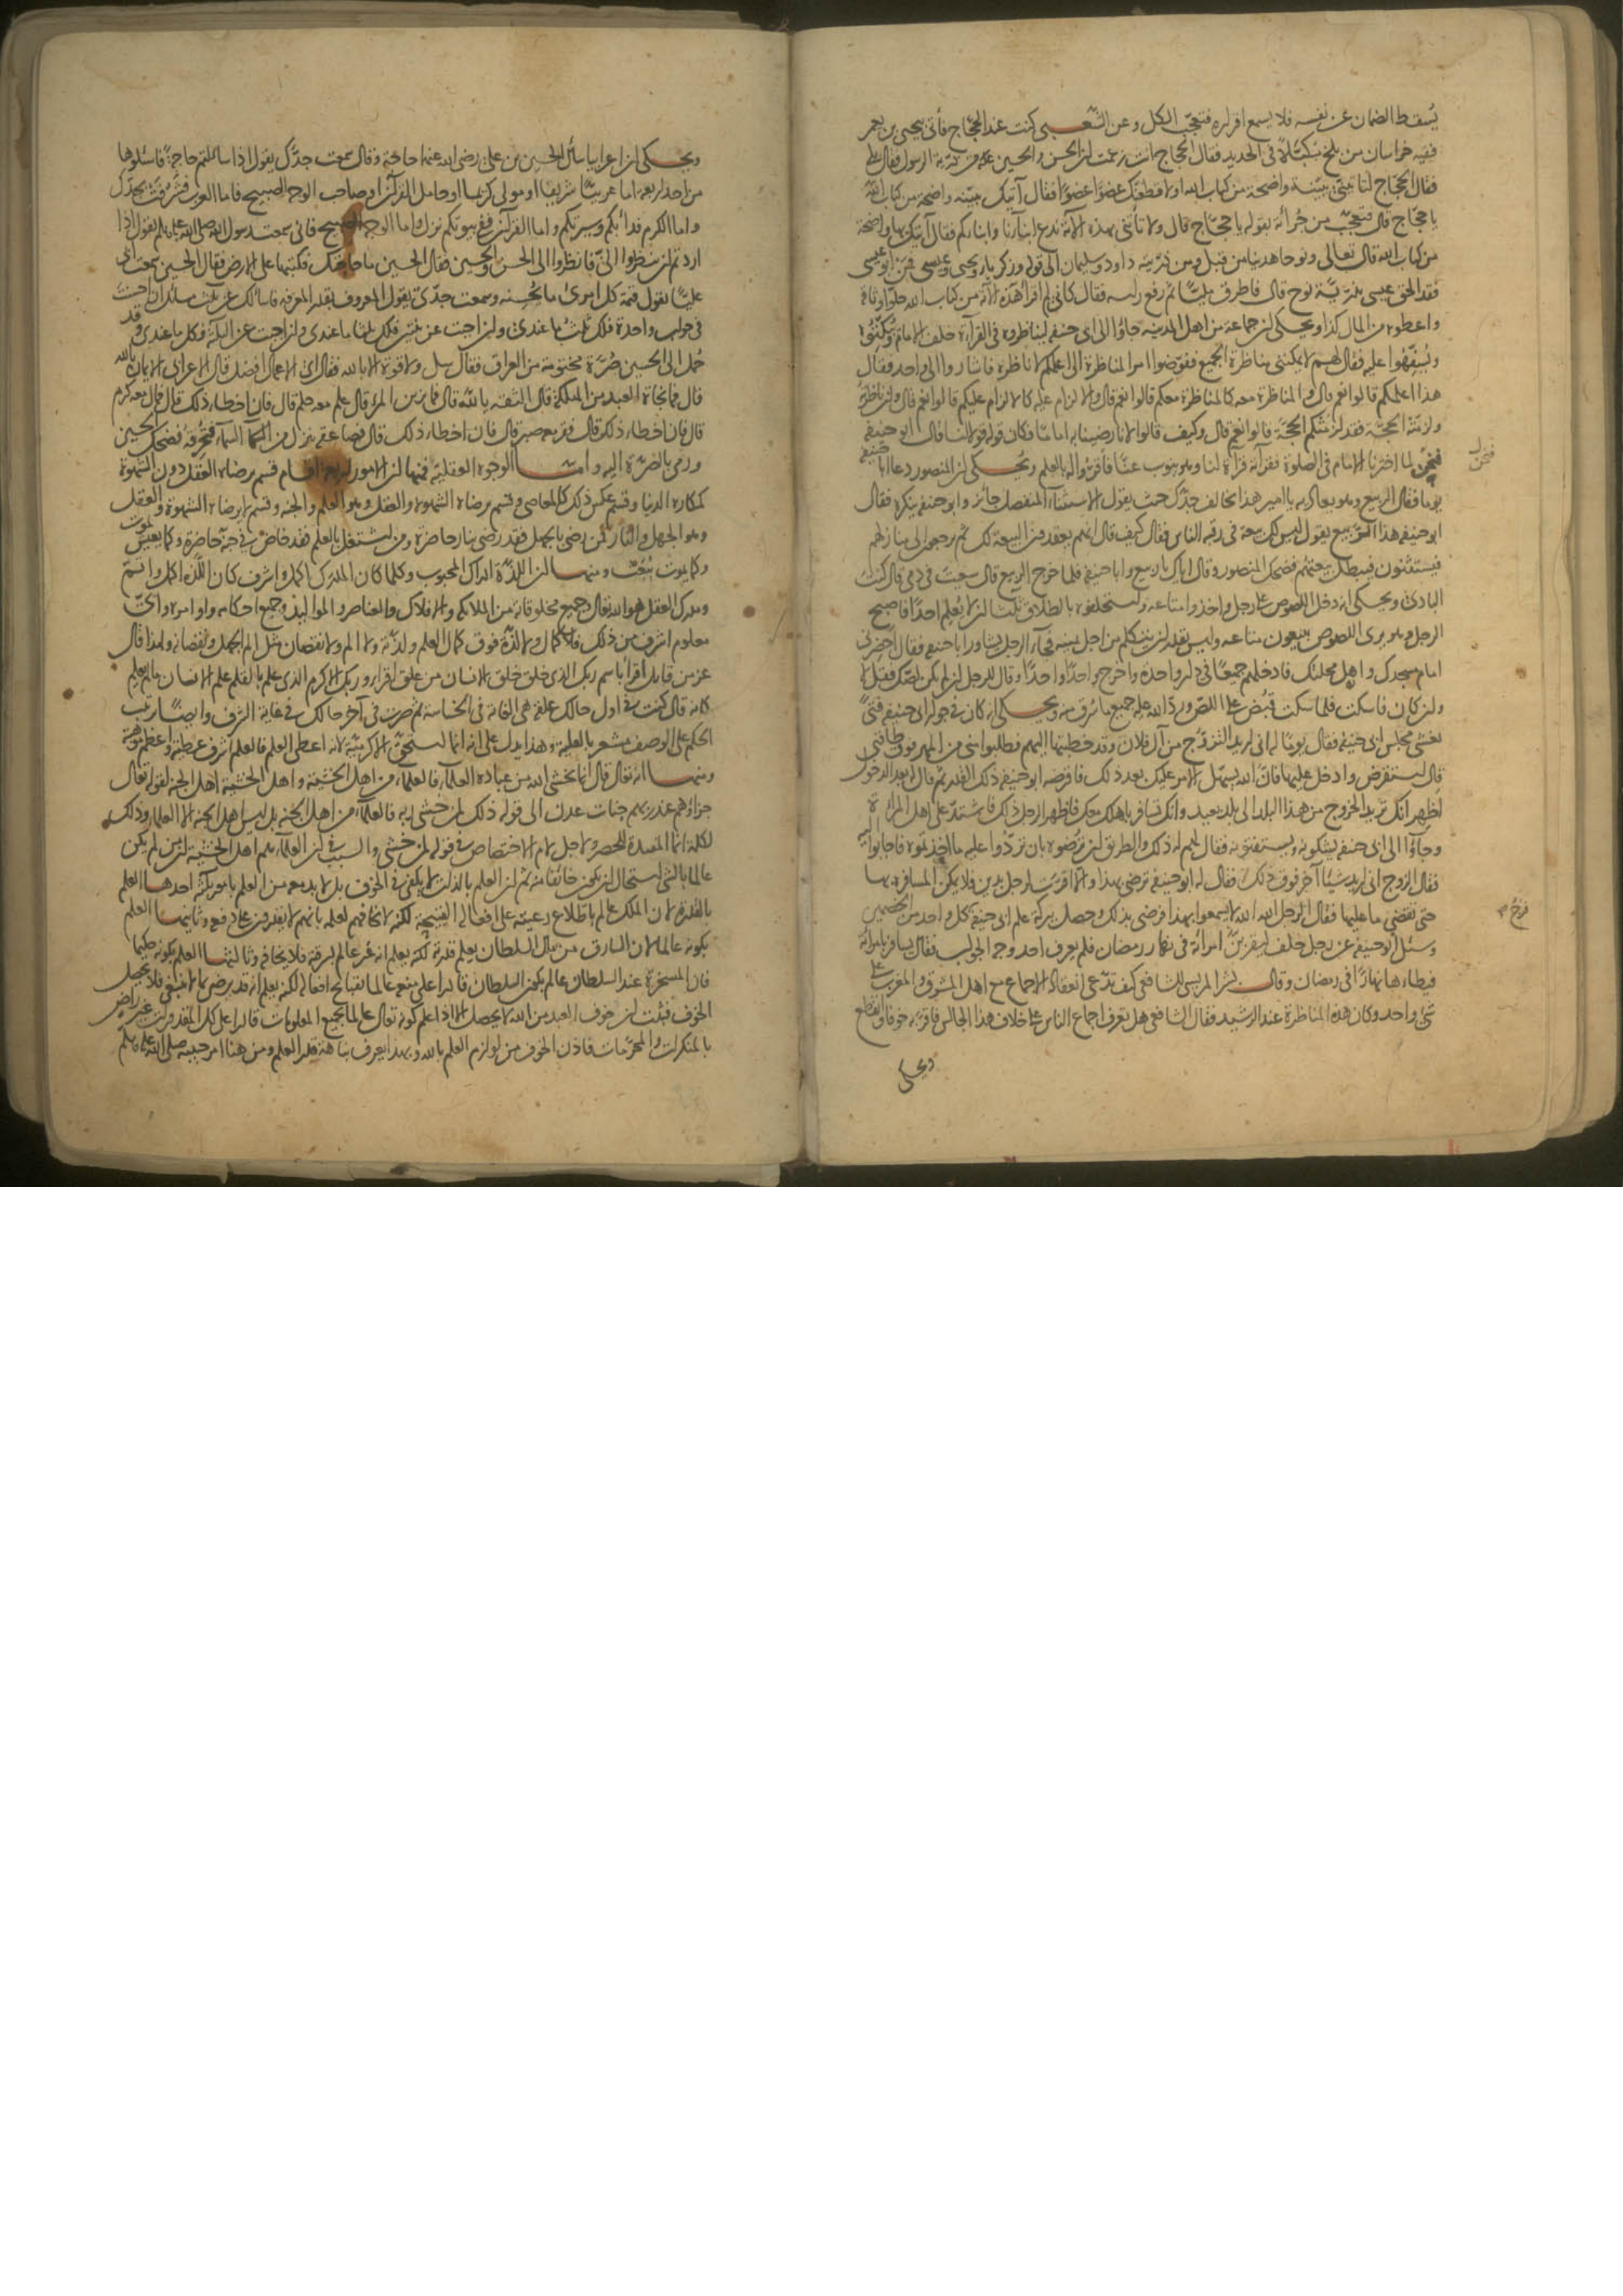 يُسقط الضمان عن نفسه فلا يسمع اقراره فتعجّب الكل وعن الشعبي كنت عند الحجّاج فأتى بيحيى بن يعمر
فقيه خراسان من بلخ مكبّلا في الحديد فقال الحجاج انت زعمت ان الحسن والحسين من ذرّية الرسول فقال بلى
فقال الحجّاج لتأتيني ببيّنة واضحة من كتاب الله او لاقطعنّك عضوا عضوا فقال آتيك ببيّنة واضحة من كتاب الله
يا حجّاج قال فتعجّبت من جُرأته بقوله يا حجّاج قال ولا تأتني بهذه الآية ندع ابنآءنا وابناءكم فقال آتيك بها واضحة
من كتاب الله قال تعالى ونوحا هدينا من قبل ومن ذرّيته داود وسليمان الى قوله وزكريا ويحيى وعيسى فمن ابو عيسى
فقد الحق عيسى بذرّيّة نوح قال فاطرق مليّا ثم رفع راسه فقال كاني لم اقرأ هذه الآية من كتاب الله حلّوا وثاقه
واعطوه من المال كذا ويحكى ان جماعة من اهل المدينه جاؤا الى ابى حنيفه ليناظروه فى القراءة خلف الامام ويُبكّتوه
ويُسفّهوا عليه فقال لهم لا يمكنني مناظرة الجميع ففوّضوا امر المناظرة الى اعلمكم لاناظره فاشاروا الى واحد فقال
هذا اعلمكم قالوا نعم قال والمناظرة معه كالمناظرة معكم قالوا نعم قال والالزام عليه كالالزام عليكم قالوا نعم قال وان ناظرته
ولزمته الحجّة فقد لزمتكم الحجّة قالوا نعم قال وكيف قالوا لانا رضينا به اماما فكان قوله قولا لنا قال ابو حنيفه
فنحن لما اخترنا الامام في الصلوة فقرآته قرآة لنا وهو ينوب عنّا فأقرّوا له بالعلم ويُحكى ان المنصور دعا ابا حنيفه
يوما فقال الربيع وهو يعاديه يا امير هذا يخالف جدّك حيث يقول الاستثناء المنفصل جائز وابو حنيفه ينكره فقال
ابو حنيفه هذا الربيع يقول ليس لك بيعة في رقبة الناس فقال كيف قال انهم يعقدون البيعة لك ثم يرجعون الى منازلهم
فيستثنون فيبطل بيعتهم فضحك المنصور وقال اياك يا ربيع وابا حنيفه فلما خرج الربيع قال سعيت في دمي قال كنت
البادئ ويحكى انه دخل اللصوص على رجل واخذوا متاعه واستحلفوه بالطلاق ثلثا ان لا يُعلم احدًا فاصبح
الرجل وهو يرى اللصوص يبيعون متاعه وليس يقدر ان يتكلم من اجل يمينه فجآء الرجل يشاور ابا حنيفه فقال احضرني
امام مسجدك واهل محلتك فادخلهم جميعًا في دار واحدة واخرج واحدًا واحدًا وقال للرجل ان لم يكن لصّك فقل لا
وان كان فاسكت فلما سكت قُبض على اللصّ وردّ الله عليه جميع ما سُرق منه ويحكى انه كان في جوار ابى حنيفه فتىً
يغشى مجلس ابى حنيفه فقال يومًا له انى اريد التزوّج من آل فلان وقد خطبتها اليهم فطلبوا منى من المهر فوق طاقتي
قال استقرض وادخل عليها فانّ الله يسهّل الامر عليك بعد ذلك فاقرضه ابو حنيفه ذلك القدر ثم قال له بعد الدخول
اظهر انك تريد الخروج من هذا البلد الى بلد بعيد وانك تسافر باهلك معك فاظهر الرجل ذلك فاشتدّ على اهل المرأة
وجآؤا الى ابى حنيفه يشكونه ويستفتونه فقال لهم له ذلك والطريق ان ترضوه بان تردّوا عليه ما اخذتموه فاجابوا اليه
فقال الزوج انى اريد شيئا آخر فوق ذلك فقال له ابو حنيفه ترضى بهذا والا اقرّت لرجل بدين فلا يمكن المسافره بها
حتى تقضي ما عليها فقال الرجل الله الله لا يسمعوا بهذا فرضي بذلك وحصل ببركة علم ابى حنيفة كل واحد من الخصمين
وسئل ابو حنيفة عن رجل حلف ليقربنّ امرأته في نهار رمضان فلم يعرف احد وجه الجواب فقال يسافر بامرأته
فيطاءها نهارًا في رمضان وقال بشر المريسي للشافعي كيف تدّعي انعقاد الاجماع مع اهل المشرق والمغرب على
شئ واحد وكان هذه المناظرة عند الرشيد فقال الشافعي هل تعرف اجماع الناس على خلافة هذا الجالس فاقرّ به خوفا وانقطع
ويحكى
فنحن
فرج
ويحكى ان اعرابيا سأل الحسين بن على رضى الله عنهما حاجة وقال سمعت جدّك يقول اذا سألتم حاجةً فاسئلوها
من احد اربعة اما عربيّا شريفا او مولى كريما او حامل القرآن او صاحب الوجه الصبيح فاما العرب فشرفت بجدّك
واما الكرم فدأبكم وسيرتكم واما القرآن ففى بيوتكم نزل واما الوجه الصبيح فانى سمعت رسول الله صلى الله عليه وسلم يقول اذا
اردتم ان تنظروا الىّ فانظروا الى الحسن والحسين فقال الحسين ما حاجتك فكتبها على الارض فقال الحسين سمعت ابى
عليًّا يقول قيمة كل امرئ ما يُحسنه وسمعت جدّى يقول المعروف بقدر المعرفه فاسألك عن ثلث مسائل ان اجبت
في جواب واحدة فلك ثلث ما عندي وان اجبت عن ثنتين فلك ثلثا ما عندي وان اجبت عن الثلاثة فكل ما عندي وقد
حُمل الى الحسين صُرّة مختومة من العراق فقال سل ولا قوة الا بالله فقال اىّ الاعمال افضل قال الاعرابى الايمان بالله
قال فما نجاة العبد من الهلكة قال الثقة بالله قال فما يزين المرء قال علم معه حلم قال فان اخطاء ذلك قال فمال معه كرم
قال فان اخطاء ذلك قال ففقر معه صبر قال فان اخطاء ذلك قال فصاعقة ينزل من السماء فتحرقه فضحك الحسين
ورمى بالصُرّة اليه وامّا الوجوه العقلية فمنها ان الامور اربعة اقسام قسم يرضاه العقل دون الشهوة
كمكاره الدنيا وقسم عكس ذلك كالمعاصي وقسم يرضاه الشهوة والعقل وهو العلم والجنه وقسم لا يرضاه الشهوة والعقل
وهو الجهل والنار فمن رضى بالجهل فقد رضى بنار حاضرة ومن اشتغل بالعلم فقد خاض في جنّة حاضرة وكما يعيش يموت
وكما يموت يُبعث ومنها ان اللذّة ادراك المحبوب وكلما كان المدرك اكمل واشرف كان اللذّة اكمل واتمّ
ومدرك العقل هو الله تعالى وجميع مخلوقاته من الملائكة والافلاك والعناصر والمواليد وجميع احكامه واوامره واىّ
معلوم اشرف من ذلك فلا كمال ولا لذّة فوق كمال العلم ولذّته ولا الم ولا نقصان مثل الم الجهل ونقصانه ولهذا قال
عز من قائل اقرأ باسم ربك الذى خلق خلق الانسان من علق اقراء وربك الاكرم الذى علم بالقلم علم الانسان ما لم يعلم
كانه قال كنت في اول حالك علقة هى الغاية فى الخساسة ثم صرت فى آخر حالك في غاية الشرف وايضًا رتب
الحكم على الوصف مشعر بالعلية وهذا يدل على انه انما استحقّ الاكرميّة لانه اعطى العلم فالعلم اشرف عطيّة واعظم موهبة
ومنها انه تعالى قال انما يخشى الله من عباده العلماء فالعلماء من اهل الخشية واهل الخشية اهل الجنة لقوله تعالى
جزاؤهم عند ربهم جنات عدن الى قوله ذلك لمن خشي ربه فالعلمآء من اهل الجنه بل ليس اهل الجنة الا العلماء وذلك
لكلمة انما المفيدة للحصر ولاجل لام الاختصاص في قوله لمن خشى والسبب في ان العلمآء هم اهل الخشية ان من لم يكن
عالما بالشئ استحال ان يكون خائفا منه ثم ان العلم بالذات لا يكفى في الخوف بل لا بد معه من العلم بامور ثلثة احدها العلم
بالقدرة لان الملك عالم باطلاع رعيته على افعاله القبيحة لكنه لا يخافهم لعلمه بانهم لا يقدرون على دفعه وثانيها العلم
بكونه عالما لان السارق من مال السلطان يعلم قدرته لكنه يعلم انه غير عالم بسرقته فلا يخافه وثالثها العلم بكونه حكيما
فان المسخرة عند السلطان عالم بكون السلطان قادرا على منعه عالما بقبائح افعاله لكنه يعلم انه قد يرضى بما لا ينبغى فلا يحصل
الخوف فثبت ان خوف العبد من الله لا يحصل الا اذا علم كونه تعالى عالما بجميع المعلومات قادرا على كل المقدورات غير راضٍ
بالمنكرات والمحرّمات فاذن الخوف من لوازم العلم بالله وبهذا يعرف نباهة قدر العلم ومن هنا امر حبيبه صلى الله عليه وسلم